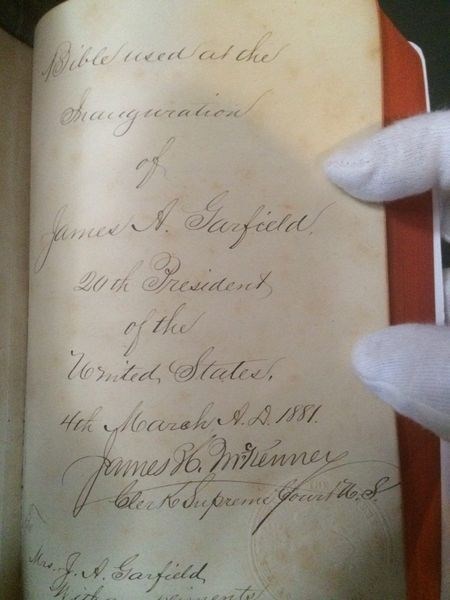 Bible used at the
Inauguration
of
James A. Garfield.
20th President
of the
United States.
4th March A.D. 1881.
James H. McKenney
Clerk Supreme Court U.S.
Mrs. J. A. Garfield